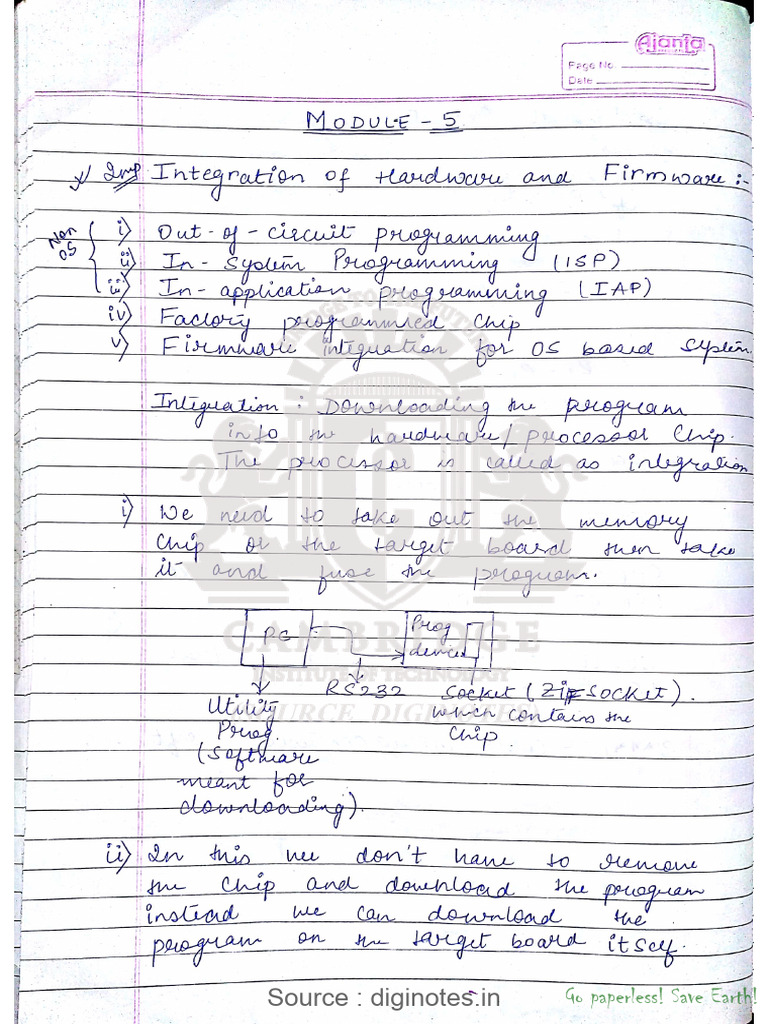 Ajanta
Page No.
Date
MODULE - 5
Imp Integration of Hardware and Firmware :-
Non OS
i) Out-of-circuit programming
ii) In-System Programming (ISP)
iii) In-application programming (IAP)
iv) Factory programmed chip
v) Firmware integration for OS based system.
Integration : Downloading the program
into the hardware/processor chip.
The processor is called as integration
i) We need to take out the memory
chip of the target board then take
it and fuse the program.
PC
Prog
device
RS232 Socket (ZIF SOCKET).
Utility which contains the
Prog. chip.
(Software
meant for
downloading).
ii) In this we don't have to remove
the chip and download the program
instead we can download the
program on the target board itself.
CAMBRIDGE
INSTITUTE OF TECHNOLOGY
(SOURCE DIGINOTES)
Source : diginotes.in
Go paperless! Save Earth!